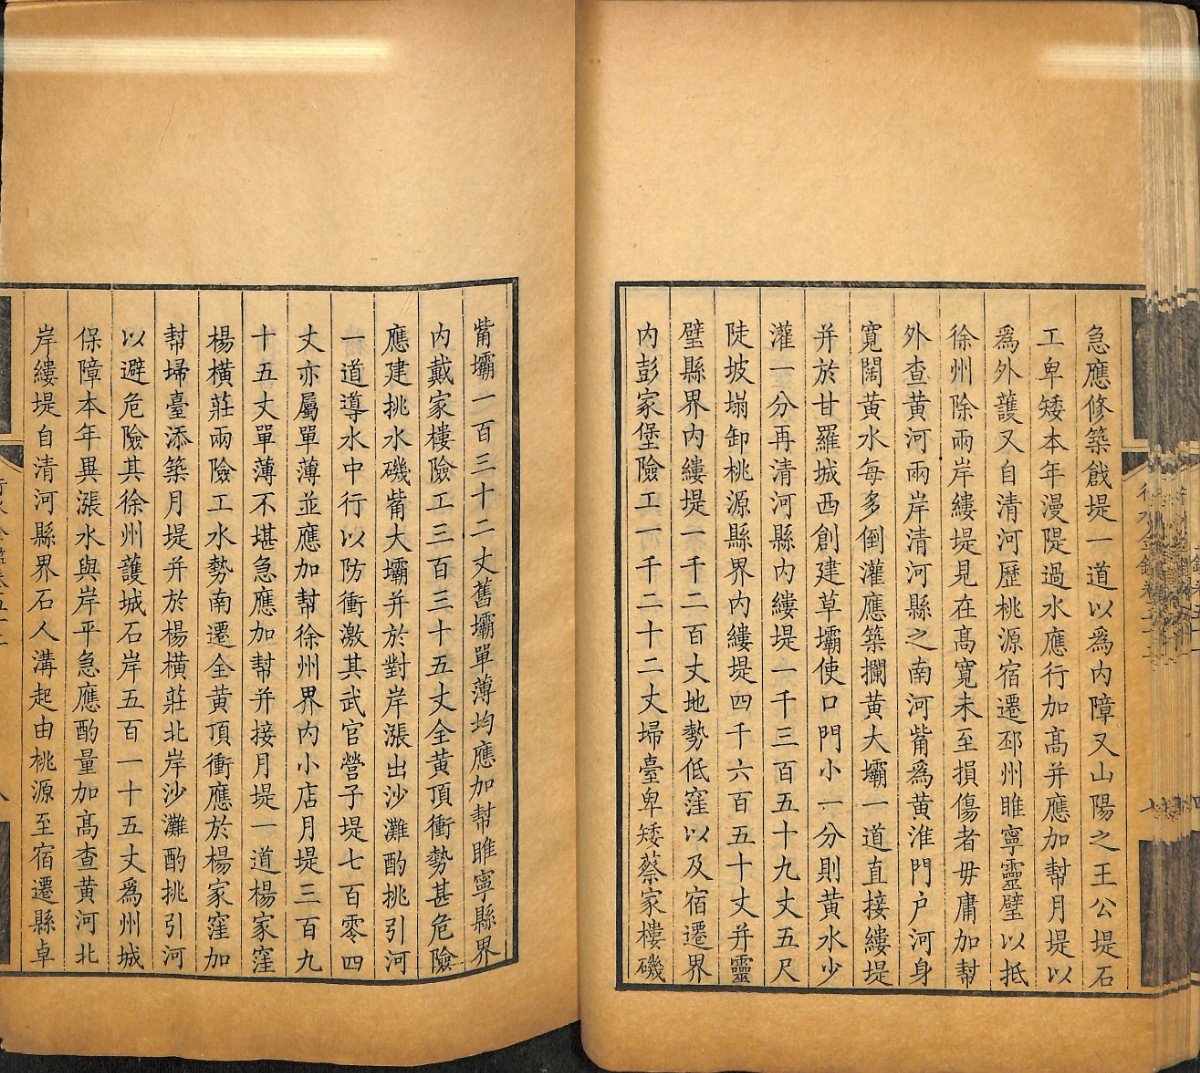 急應修築戧堤一道以爲内障又山陽之王公堤石
工卑矮本年漫隄過水應行加高并應加幫月堤以
爲外護又自清河歷桃源宿遷邳州睢寧靈璧以抵
徐州除兩岸縷堤見在高寬未至損傷者毋庸加幫
外查黄河兩岸清河縣之南河觜爲黄淮門户河身
寬闊黄水每多倒灌應築攔黄大壩一道直接縷堤
并於甘羅城西創建草壩使口門小一分則黄水少
灌一分再清河縣内縷堤一千三百五十九丈五尺
陡坡塌卸桃源縣界内縷堤四千六百五十丈并靈
璧縣界内縷堤一千二百丈地勢低窪以及宿遷界
内彭家堡險工一千二十二丈埽臺卑矮蔡家樓磯
觜壩一百三十二丈舊壩單薄均應加幫睢寧縣界
内戴家樓險工三百三十五丈全黄頂衝勢甚危險
應建挑水磯觜大壩并於對岸漲出沙灘酌挑引河
一道導水中行以防衝激其武官營子堤七百零四
丈亦屬單薄並應加幫徐州界内小店月堤三百九
十五丈單薄不堪急應加幫并接月堤一道楊家窪
楊橫莊兩險工水勢南遷全黄頂衝應於楊家窪加
幫埽臺添築月堤并於楊橫莊北岸沙灘酌挑引河
以避危險其徐州護城石岸五百一十五丈爲州城
保障本年異漲水與岸平急應酌量加高查黄河北
岸縷堤自清河縣界石人溝起由桃源至宿遷縣卓